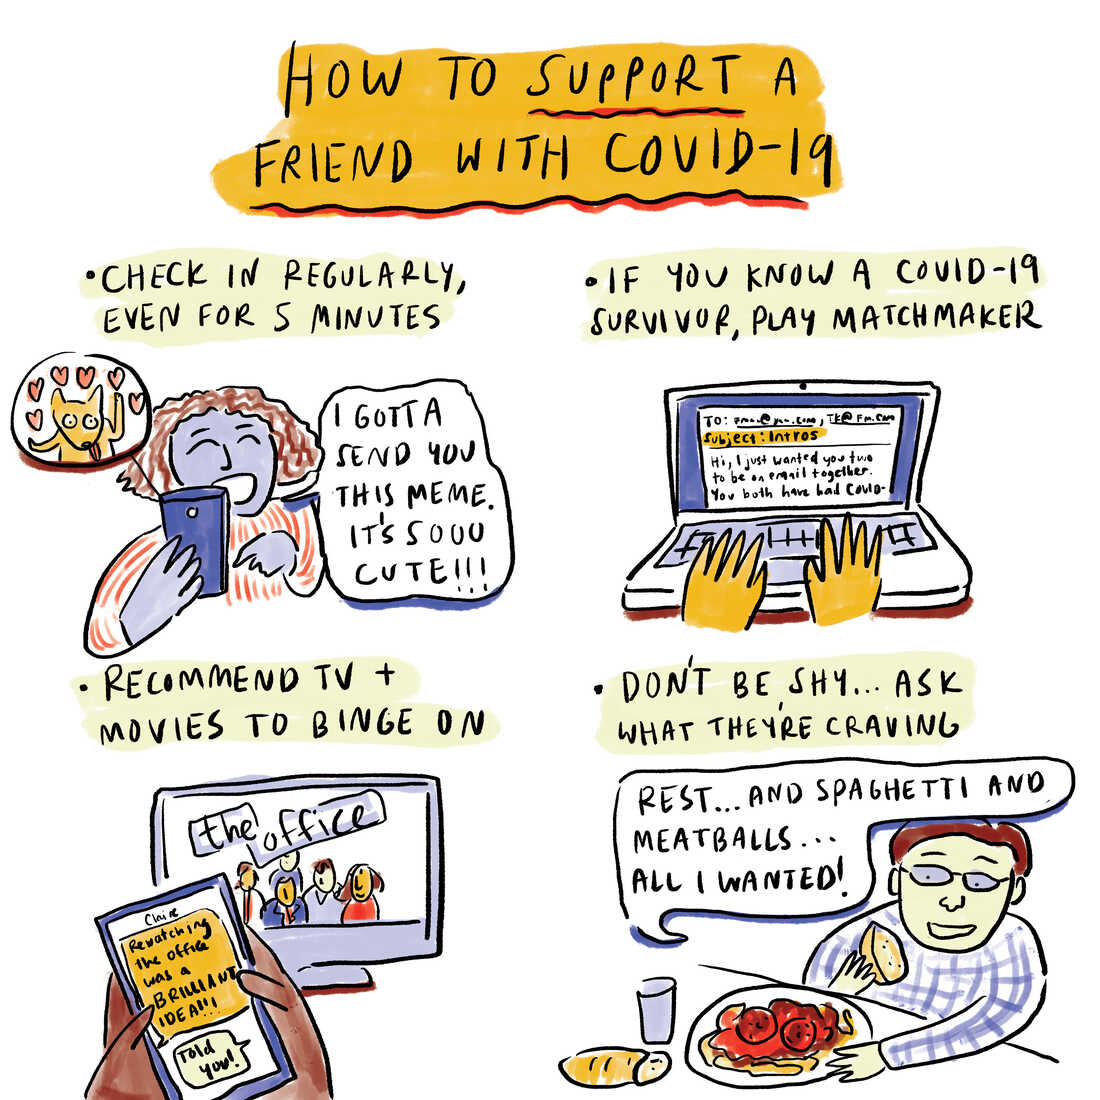 HOW TO SUPPORT A
FRIEND WITH COVID-19
• CHECK IN REGULARLY,
EVEN FOR 5 MINUTES
I GOTTA
SEND YOU
THIS MEME.
IT'S SOOO
CUTE!!!
• IF YOU KNOW A COVID-19
SURVIVOR, PLAY MATCHMAKER
TO:
Subject: Intros
Hi, I just wanted you two
to be on email together.
You both have had COVID-
• RECOMMEND TV +
MOVIES TO BINGE ON
the office
Claire
Rewatching
the office
was a
BRILLIANT
IDEA!!!
Told
you!
• DON'T BE SHY... ASK
WHAT THEY'RE CRAVING
REST... AND SPAGHETTI AND
MEATBALLS...
ALL I WANTED!